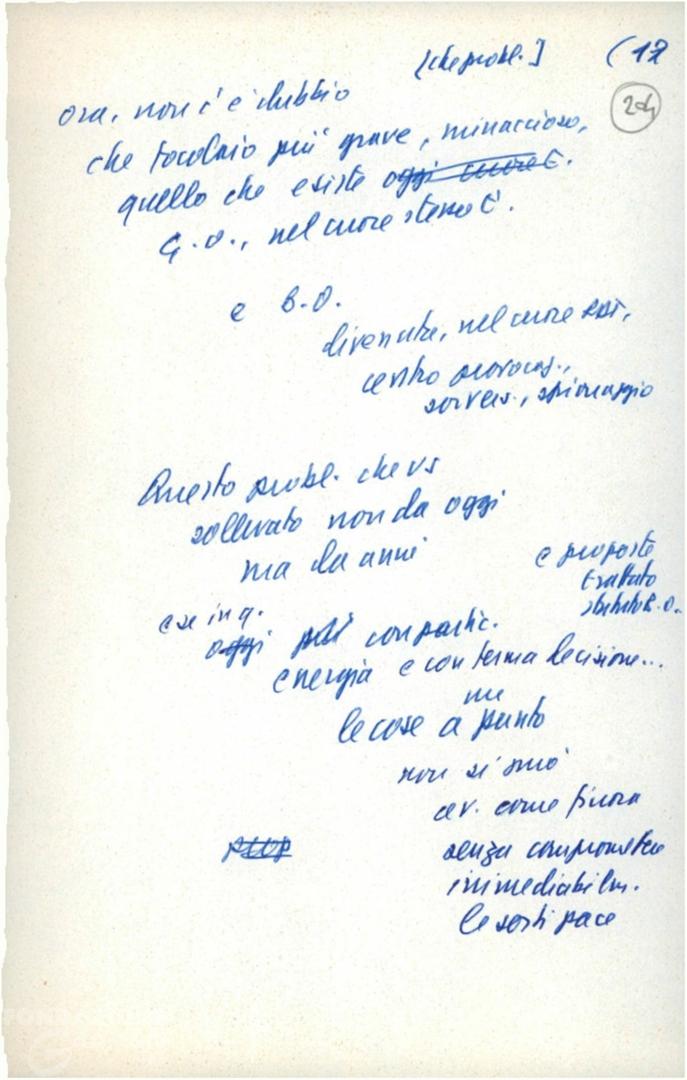 [che probl.] (17
204
ora, non c'è dubbio
che focolaio più grave, minaccioso,
quello che esiste oggi cuore E.
G. O., nel cuore stesso E.
e B.O.
divenuta, nel cuore RDT,
centro provocaz.,
sovvers., spionaggio
Questo probl. che US
sollevato non da oggi
ma da anni
e proposte
trattato
statuto B. O.
e se in q.
oggi più con partic.
energia e con ferma decisione...
me
le cose a punto
non si può
av. come finora
senza compromettere
irrimediabilm.
le sorti pace